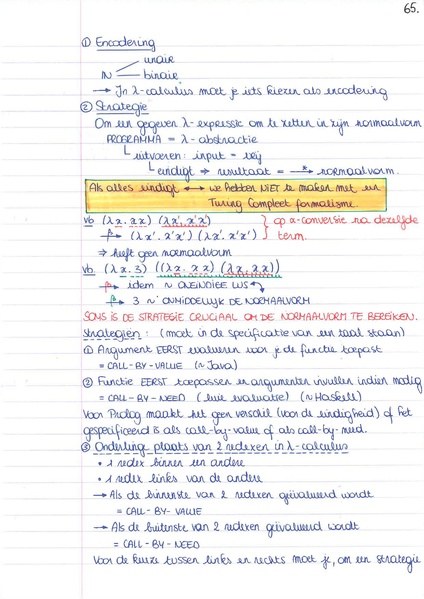 65.
① Encodering
unair
ℕ binair
→ In λ-calculus moet je iets kiezen als encodering
② Strategie
Om een gegeven λ-expressie om te zetten in zijn normaalvorm
PROGRAMMA = λ-abstractie
↳ uitvoeren: input = vrij
↳ eindigt ⇒ resultaat = →* normaalvorm.
Als alles eindigt ↔ we hebben NIET te maken met een
Turing Compleet formalisme.
vb (λx.xx) (λx'.x'x') } op α-conversie na dezelfde
→β (λx'.x'x') (λx'.x'x') } term.
⇒ heeft geen normaalvorm
vb. (λx.3) ((λx.xx) (λx.xx))
→β idem ~ ONEINDIGE LUS
→β 3 ~ ONMIDDELLIJK DE NORMAALVORM
SOMS IS DE STRATEGIE CRUCIAAL OM DE NORMAALVORM TE BEREIKEN.
Strategiën: (moet in de specificatie van een taal staan)
① Argument EERST evalueren voor je de functie toepast
= CALL-BY-VALUE (~Java)
② Functie EERST toepassen en argumenten invullen indien nodig
= CALL-BY-NEED (luie evaluatie) (~Haskell)
Voor Prolog maakt het geen verschil (voor de eindigheid) of het
gespecificeerd is als call-by-value of als call-by-need.
③ Onderlinge plaats van 2 redexen in λ-calculus
• 1 redex binnen een andere
• 1 redex links van de andere
→ Als de binnenste van 2 redexen geëvalueerd wordt
= CALL-BY-VALUE
→ Als de buitenste van 2 redexen geëvalueerd wordt
= CALL-BY-NEED
Voor de keuze tussen links en rechts moet je, om een strategie